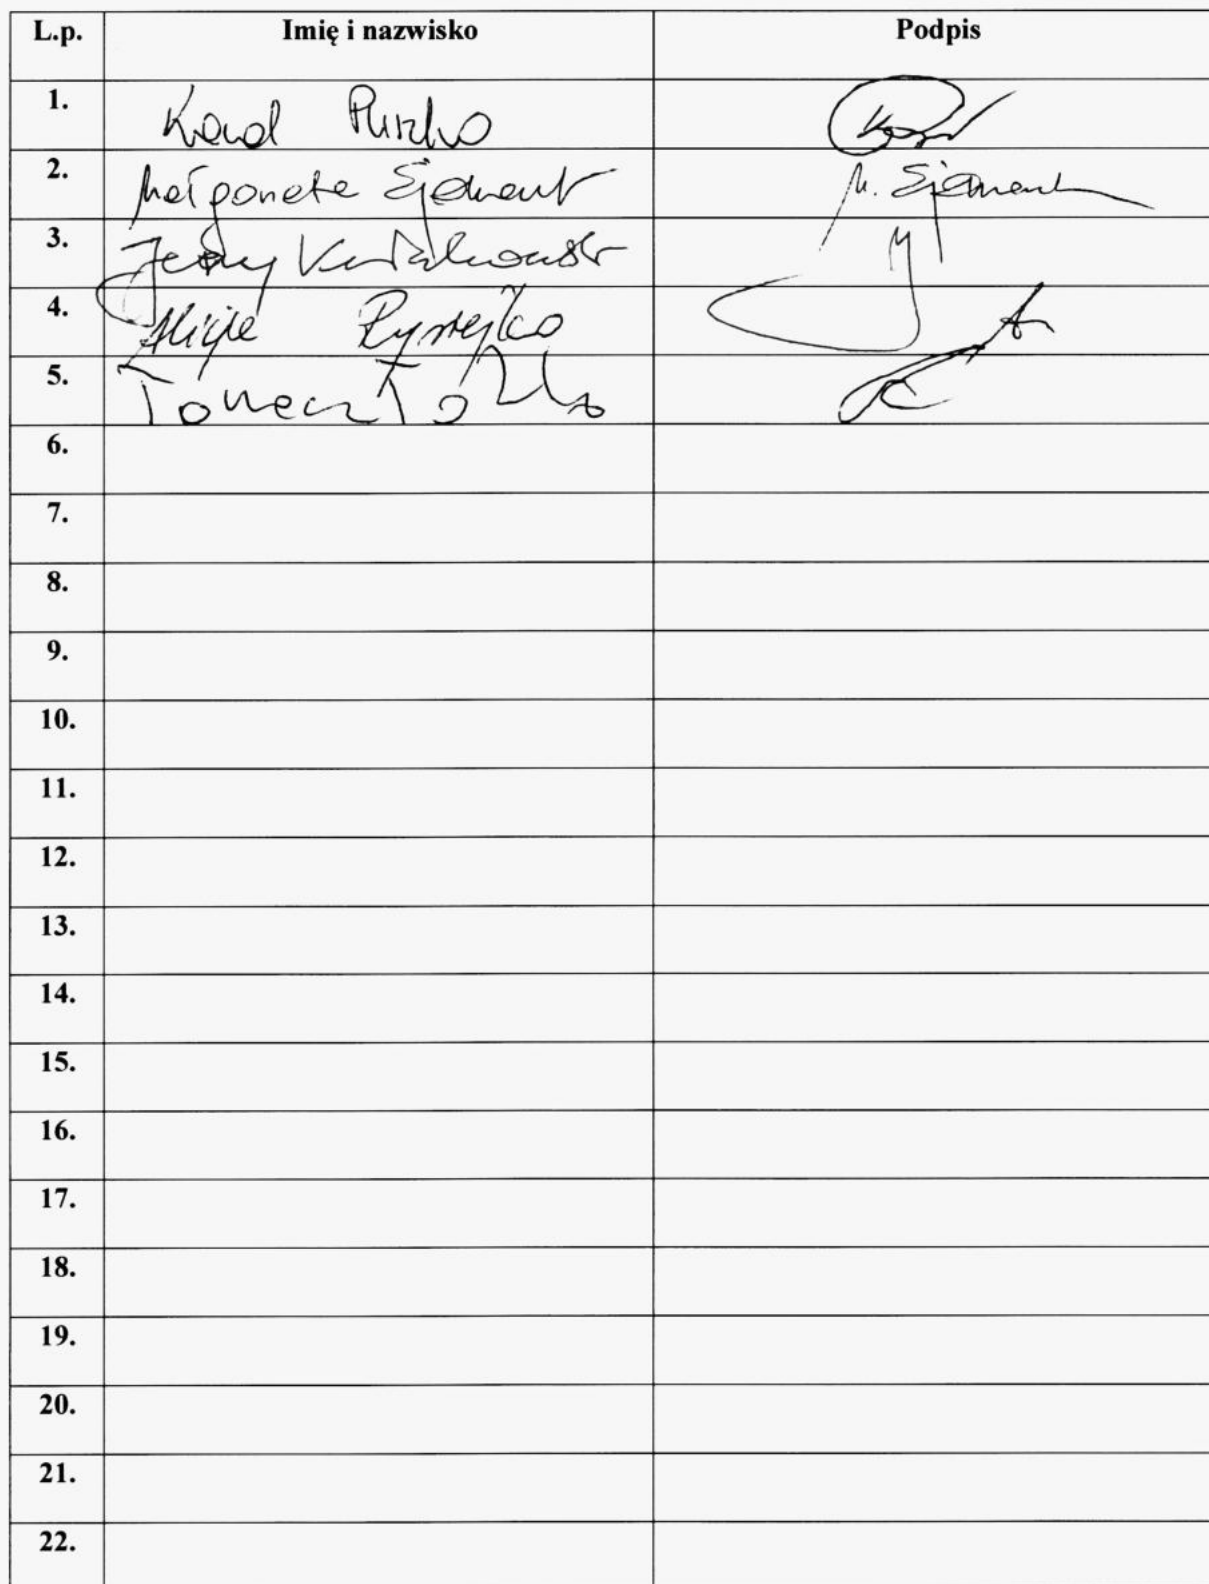 L.p. Imię i nazwisko Podpis
1. Karol Puszko
2. Małgorzata Ejdment M. Ejdment
3. Jerzy
4. Alicja Rymejko
5. Tomasz
6.
7.
8.
9.
10.
11.
12.
13.
14.
15.
16.
17.
18.
19.
20.
21.
22.